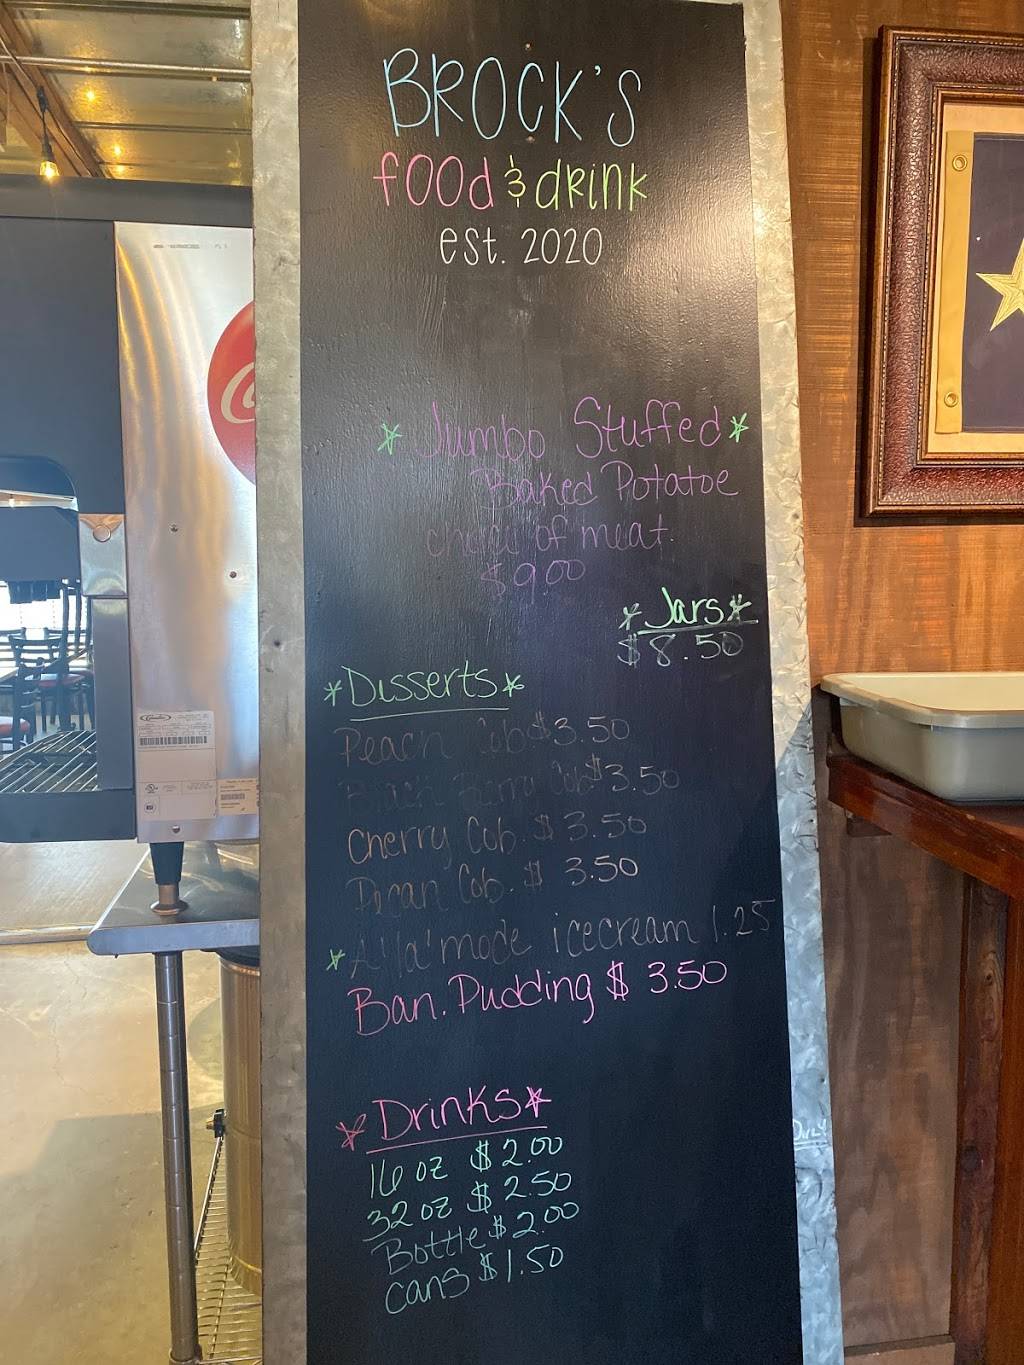 BROCK'S
food & drink
est. 2020
* Jumbo Stuffed *
Baked Potatoe
choice of meat.
$9.00
* Jars *
$8.50
* Disserts *
Peach Cob $3.50
Black Berry Cob $3.50
Cherry Cob. $ 3.50
Pecan Cob. $ 3.50
* A'la'mode icecream 1.25
Ban. Pudding $ 3.50
* Drinks *
16 oz $ 2.00
32 oz $ 2.50
Bottle $ 2.00
cans $ 1.50